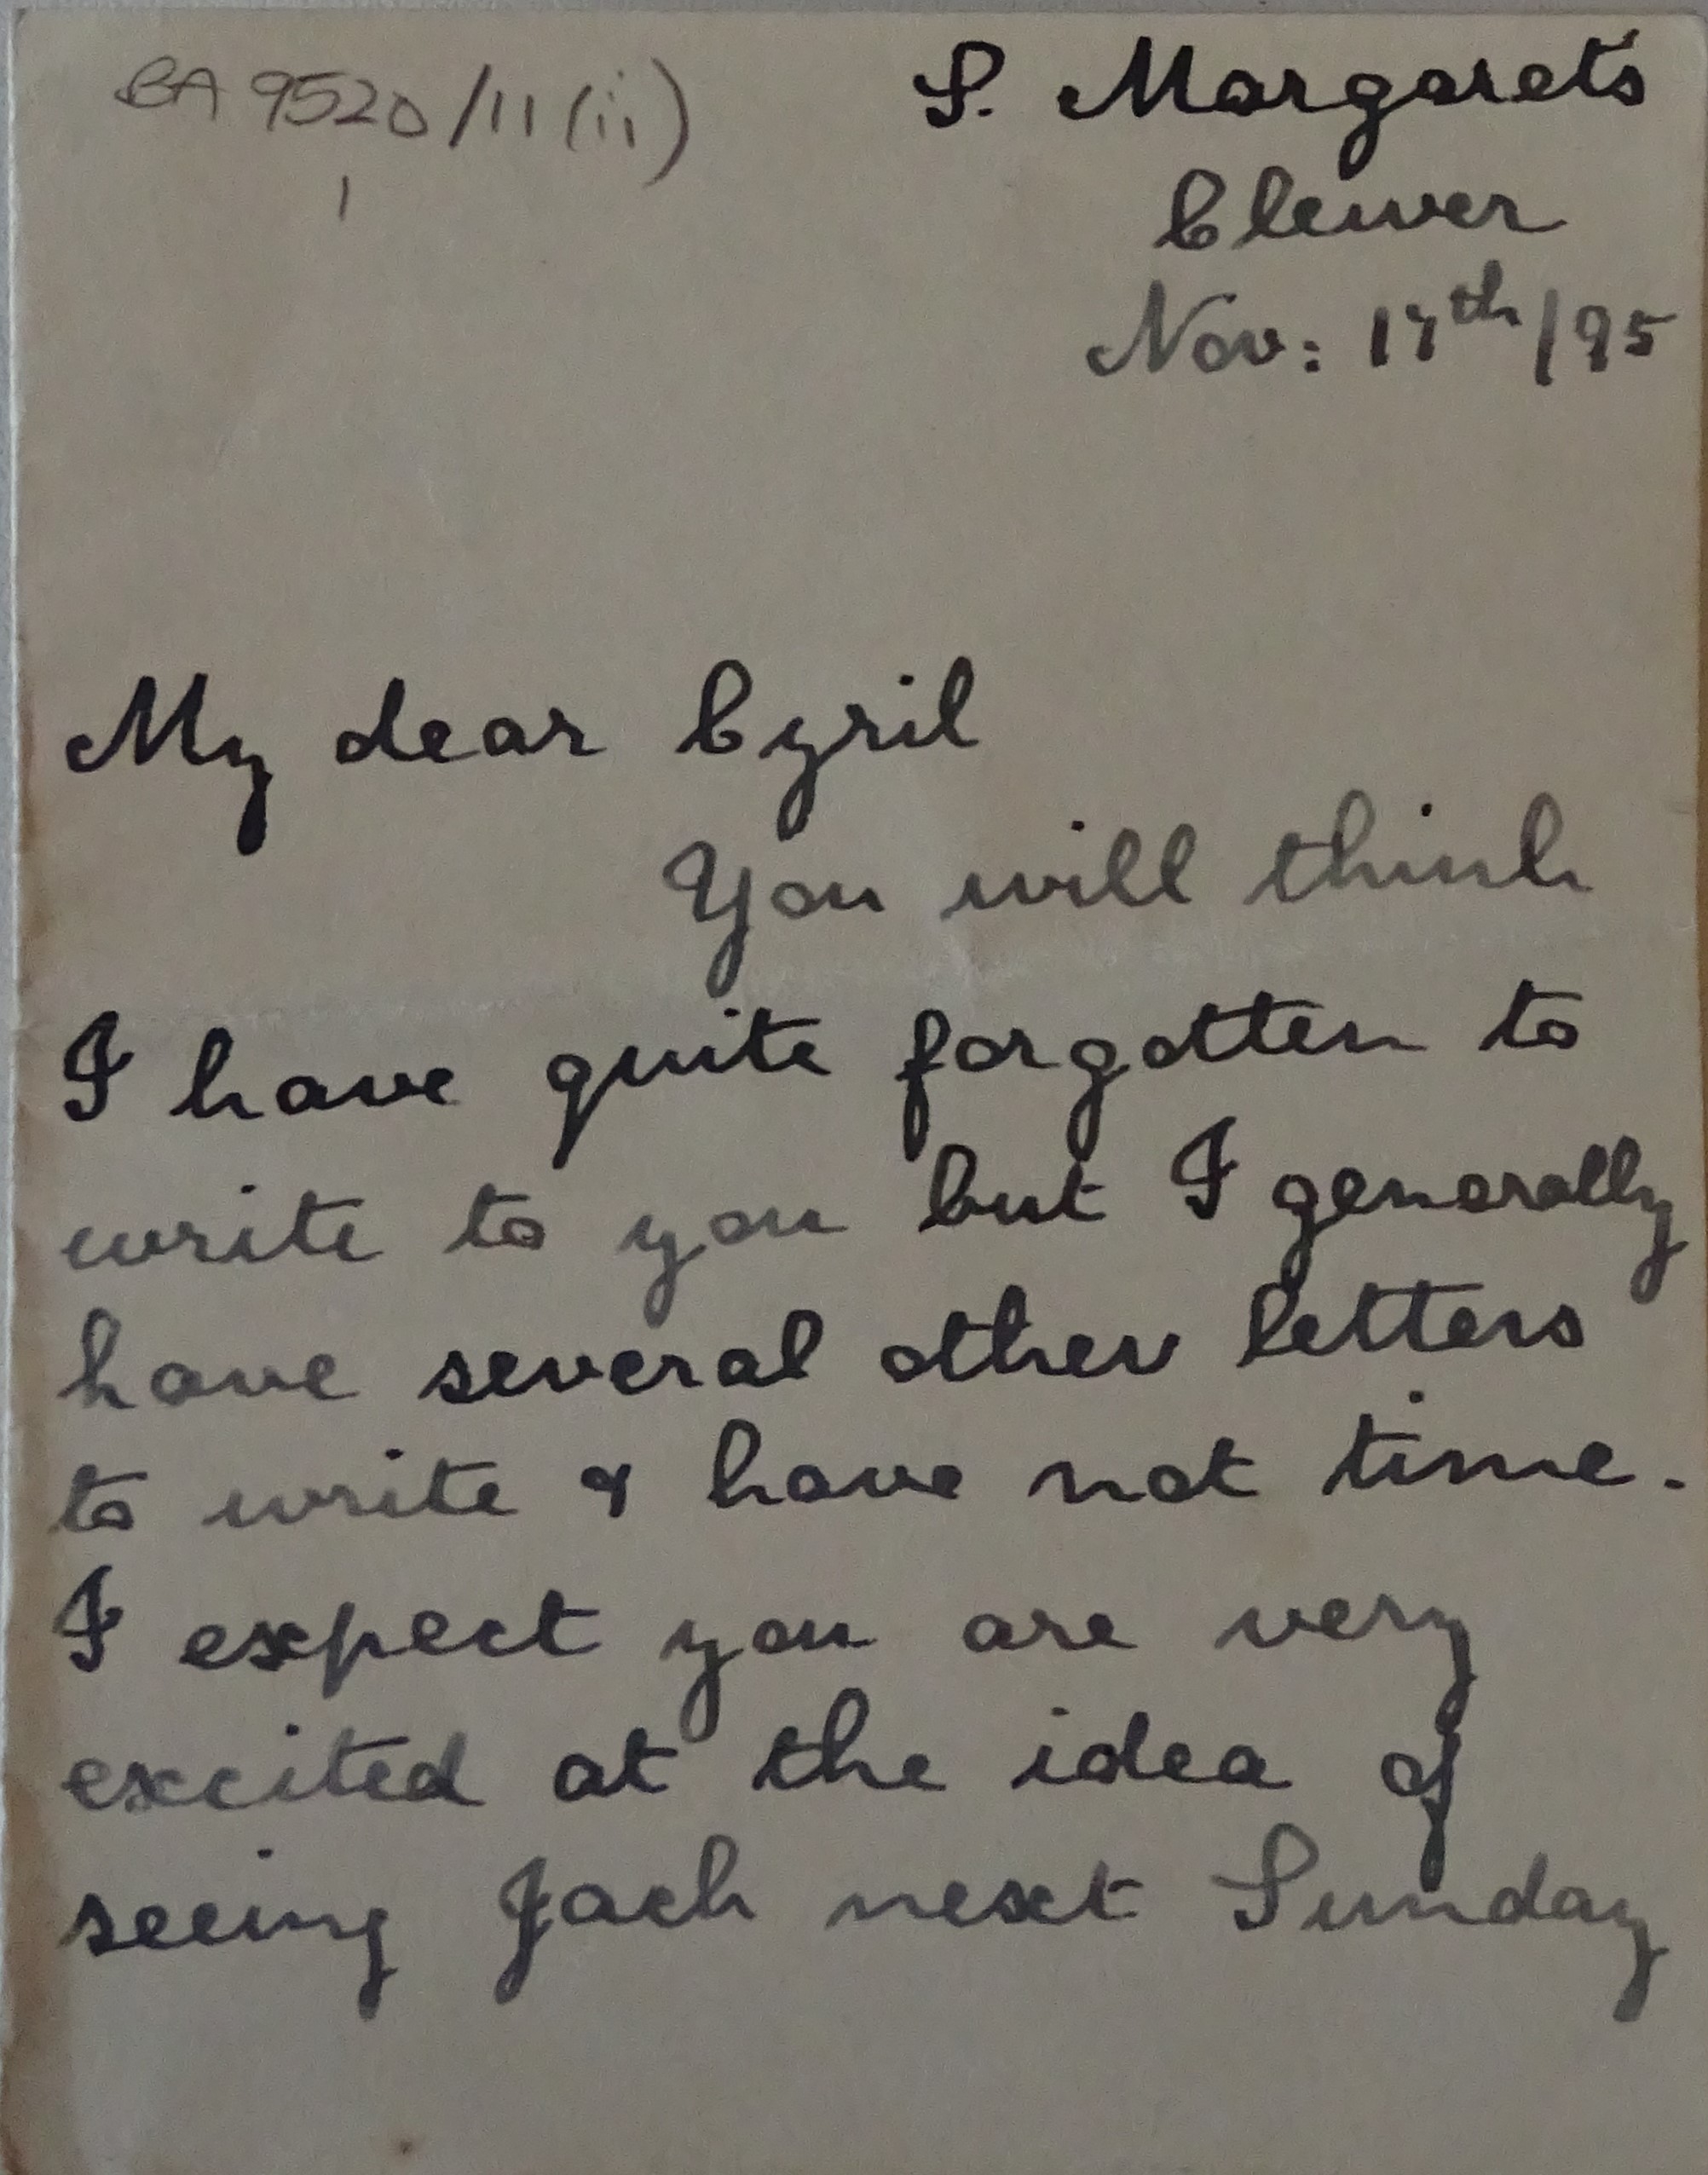 BA 9520/11 (ii)
1
S. Margaret's
Clewer
Nov: 17th/95
My dear Cyril
You will think
I have quite forgotten to
write to you but I generally
have several other letters
to write & have not time.
I expect you are very
excited at the idea of
seeing Jack next Sunday